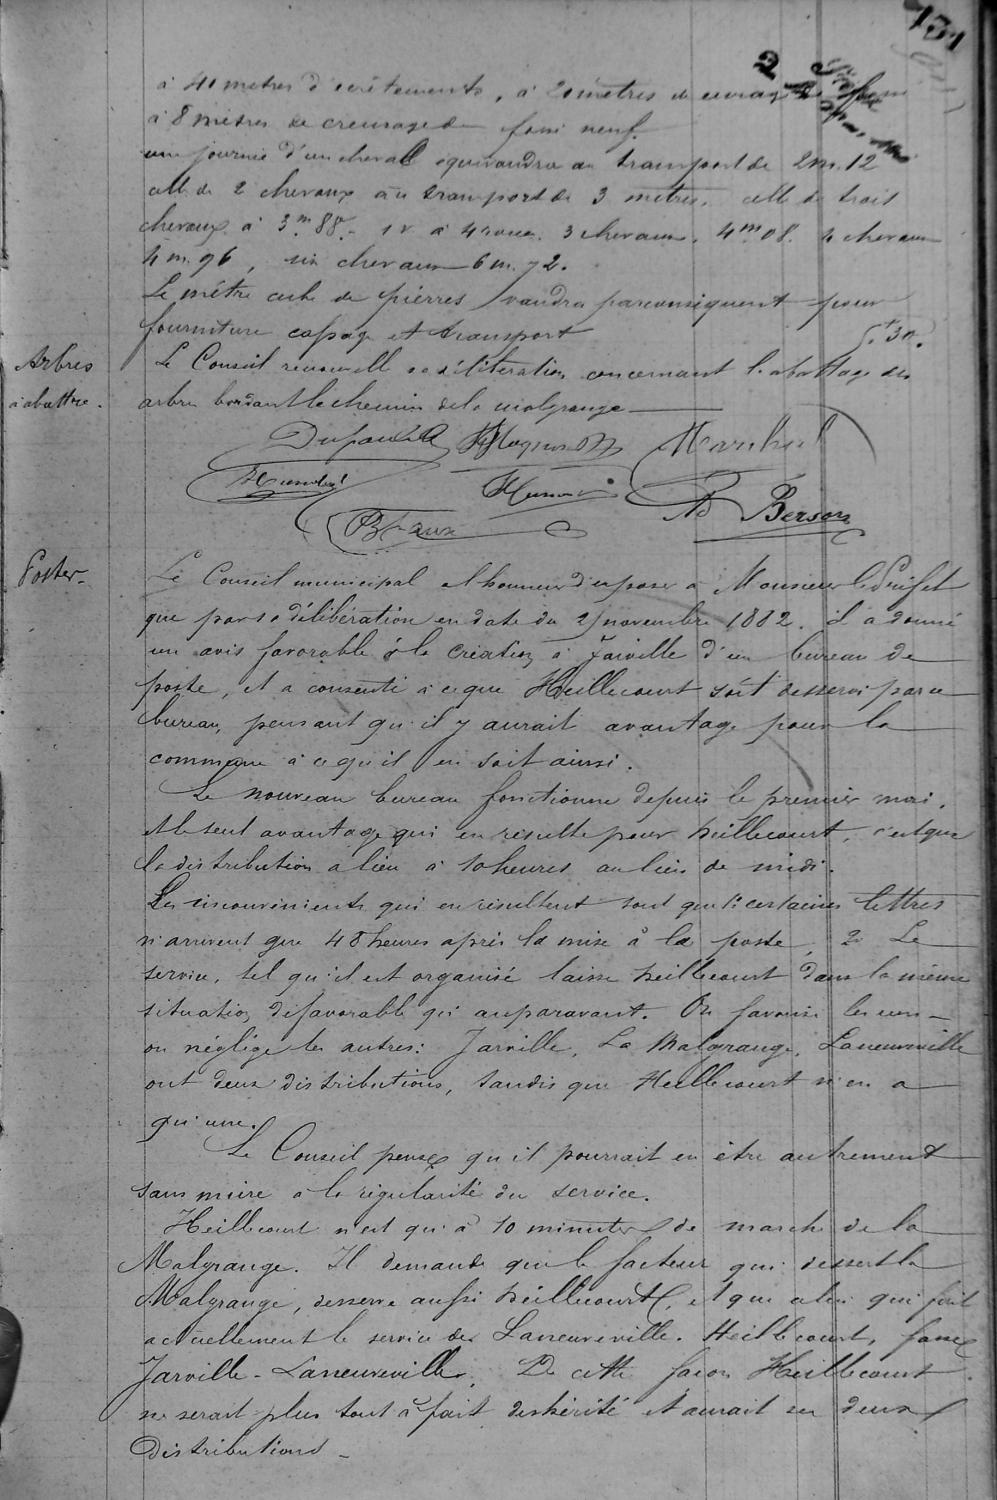 131
2
à 40 mètres d'écrêtements, à 20 mètres de curage de fossé
à 8 mètres de creusage de fossé neuf.
une journée d'un cheval équivaudra au transport de 2m.12
celle de 2 chevaux au transport de 3 mètres. celle de trois
chevaux à 3m88. 1 v. à 4 roues. 3 chevaux. 4m08. 4 chevaux
4m.96, six chevaux 6m.72.
Le mètre cube de pierres vaudra par conséquent pour
fourniture cassage et transport 5f30.
Arbres
à abattre.
Le Conseil renouvelle sa délibération concernant l'abattage des
arbres bordant le chemin de la malgrange
Maréchal
Berson
Postes
Le Conseil municipal a l'honneur d'exposer à Monsieur le Préfet
que par sa délibération en date du 27 novembre 1882. il a donné
un avis favorable à la création à Jarville d'un bureau de
poste, et a consenti à ce que Heillecourt soit desservi par ce
bureau, pensant qu'il y aurait avantage pour la
commune à ce qu'il en soit ainsi.
Le nouveau bureau fonctionne depuis le premier mai.
et le seul avantage qui en résulte pour heillecourt, c'est que
la distribution a lieu à 10 heures au lieu de midi.
Les inconvénients qui en résultent sont que 1: certaines lettres
n'arrivent que 48 heures après la mise à la poste, 2o Le
service, tel qu'il est organisé laisse heillecourt dans la même
situation défavorable qu'auparavant. On favorise les uns
on néglige les autres: Jarville, La Malgrange, Laneuveville
ont deux distributions, tandis que Heillecourt n'en a
qu'une.
Le Conseil pense qu'il pourrait en être autrement
sans nuire à la régularité du service.
Heillecourt n'est qu'à 10 minutes de marche de la
Malgrange. Il demande que le facteur qui dessert la
Malgrange, desserve aussi heillecourt, et que celui qui fait
actuellement le service de Laneuveville. Heillecourt, fasse
Jarville - Laneuveville. De cette façon Heillecourt
ne serait plus tout à fait déshérité et aurait ses deux
distributions